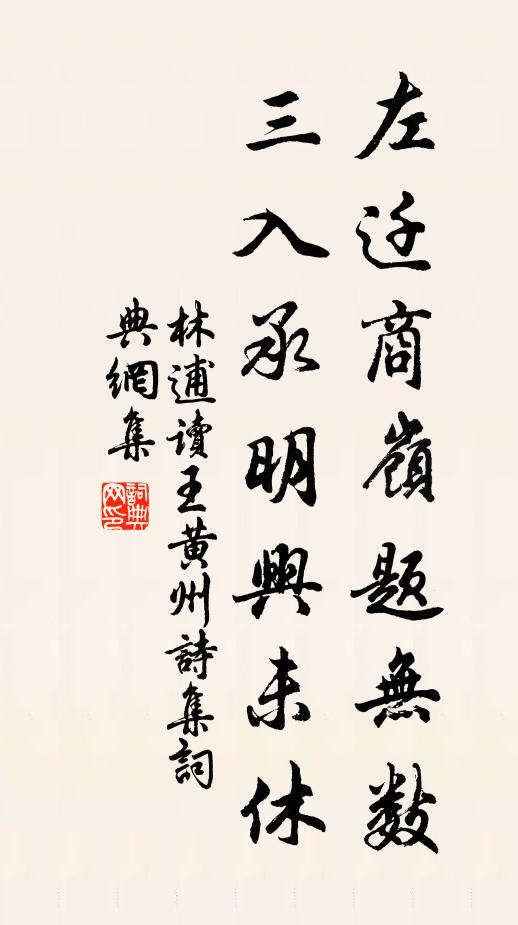 左迁商嶺题無數
三入承明興未休
林逋讀王黃州詩集詞
典網集
詞典
网印